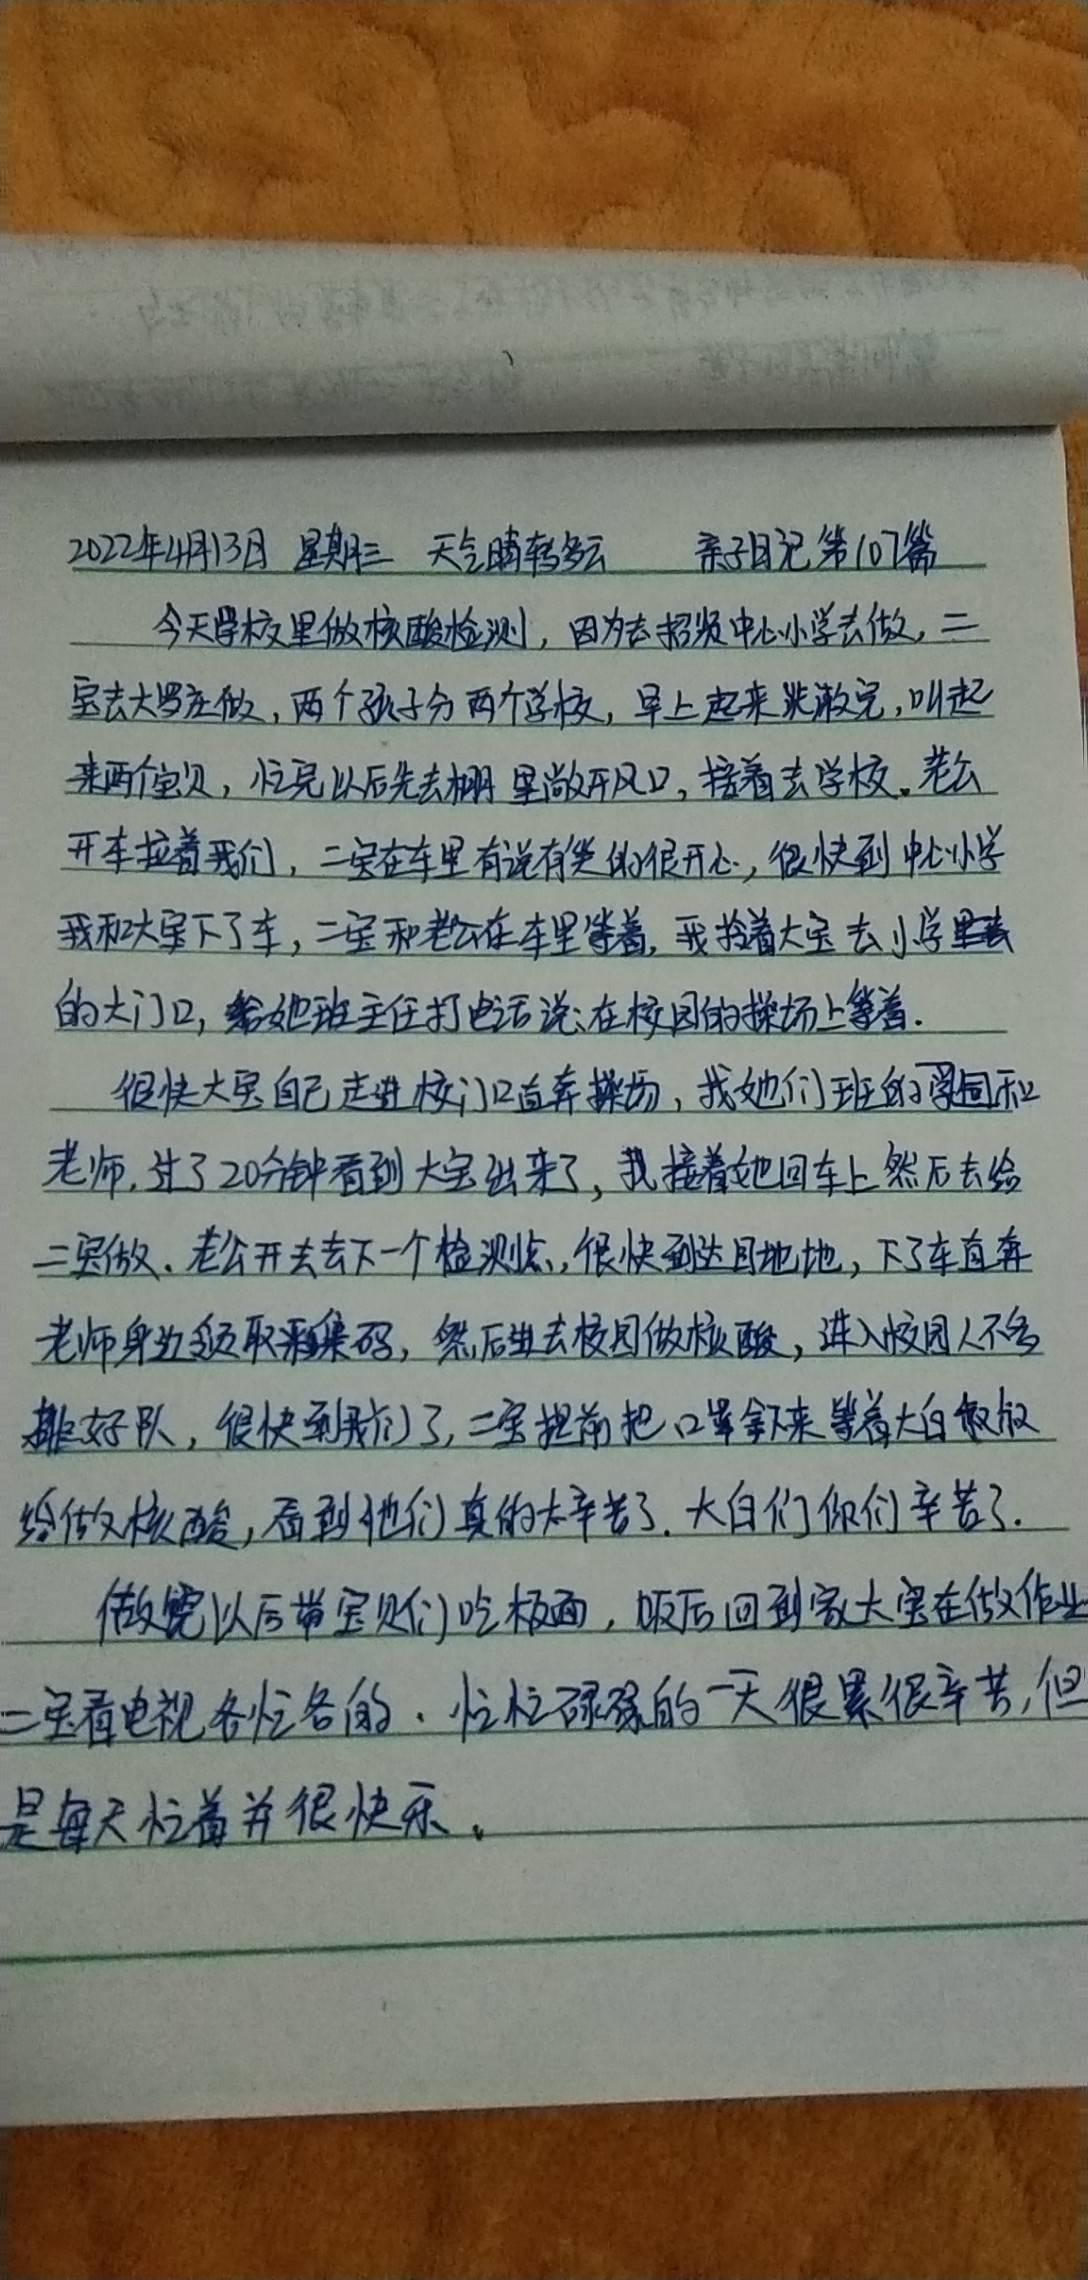 2022年4月13日 星期三 天气晴转多云 亲子日记第107篇
今天学校里做核酸检测，因为去招贤中心小学去做，二
宝去大罗庄做，两个孩子分两个学校，早上起来洗漱完，叫起
来两个宝贝，忙完以后先去棚里敞开风口，接着去学校。老公
开车拉着我们，二宝在车里有说有笑的很开心，很快到中心小学
我和大宝下了车，二宝和老公在车里等着，我拎着大宝去小学里
的大门口，给她班主任打电话说：在校园的操场上等着.
很快大宝自己走进校门口直奔操场，找她们班的同和
老师.过了20分钟看到大宝出来了，我接着她回车上然后去给
二宝做、老公开去去下一个检测点，很快到达目地地，下了车直奔
老师身边领取采集码，然后进去校园做核酸，进入校园人不多
排好队，很快到我们了，二宝提前把口罩拿下来等着大白叔叔
给做核酸，看到他们真的太辛苦了.大白们你们辛苦了.
做完以后带宝贝们吃板面，饭后回到家大宝在做作业
二宝看电视各忙各的、忙忙碌碌的一天很累很辛苦，但
是每天忙着并很快乐。